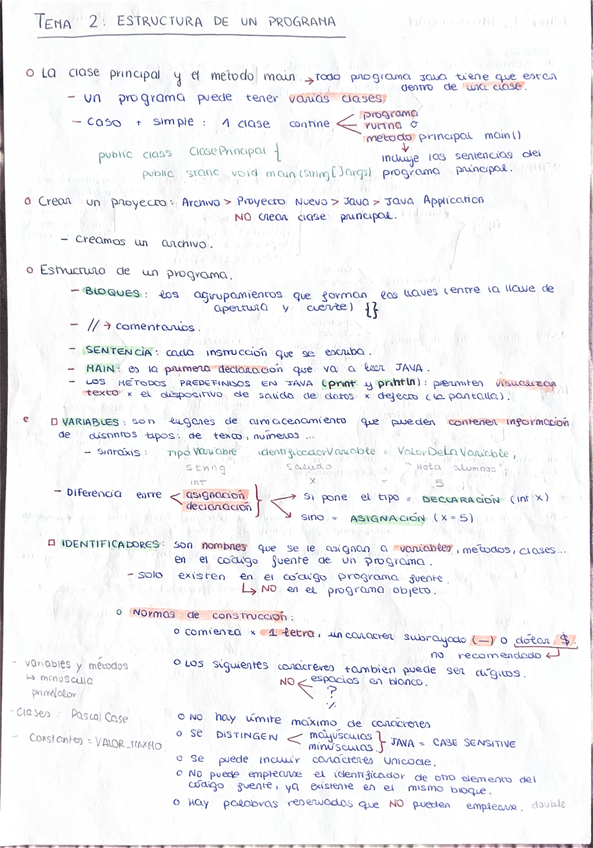 TEMA 2: ESTRUCTURA DE UN PROGRAMA
○ La clase principal y el método main → Todo programa Java tiene que estar
dentro de una clase.
- un programa puede tener varias clases.
- caso + simple: 1 clase contine
programa
rutina o
método principal main()
↓
incluye las sentencias del
programa principal.
public class ClasePrincipal {
public static void main(String[]args)
○ Crear un proyecto: Archivo > Proyecto Nuevo > Java > Java Application
NO crear clase principal.
- Creamos un archivo.
○ Estructura de un programa.
- BLOQUES: los agrupamientos que forman las llaves (entre la llave de
apertura y cierre) {}
- // → comentarios.
- SENTENCIA: cada instrucción que se escriba.
- MAIN: es la primera declaración que va a leer JAVA.
- LOS MÉTODOS PREDEFINIDOS EN JAVA (print y println): permiten visualizar
texto x el dispositivo de salida de datos x defecto (la pantalla).
□ VARIABLES: son lugares de almacenamiento que pueden contener información
de distintos tipos: de texto, números ...
- sintáxis: Tipo Variable identificadorVariable = ValorDeLaVariable;
String saludo = "Hola alumnos";
int x = 5
- Diferencia entre
asignación
declaración
→ si pone el tipo = DECLARACIÓN (int x)
→ sino = ASIGNACIÓN (x=5)
□ IDENTIFICADORES: son nombres que se le asignan a variables, métodos, clases...
en el código fuente de un programa.
- solo existen en el código programa fuente.
↳ NO en el programa objeto.
○ Normas de construcción:
○ comienza x 1 letra, un carácter subrayado (_) o dólar $.
no recomendado ↵
○ Los siguientes carácteres tambien puede ser dígitos.
NO
espacios en blanco.
?
%
- variables y métodos
↳ minuscula
- clases: PascalCase
- Constantes = VALOR_MAXIMO
○ NO hay límite máximo de carácteres
○ Se DISTINGEN
mayúsculas
minúsculas
} JAVA = CASE SENSITIVE
○ Se puede incluir carácteres Unicode.
○ No puede emplearse el identificador de otro elemento del
código fuente, ya existente en el mismo bloque.
○ Hay palabras reservadas que NO pueden emplearse. double